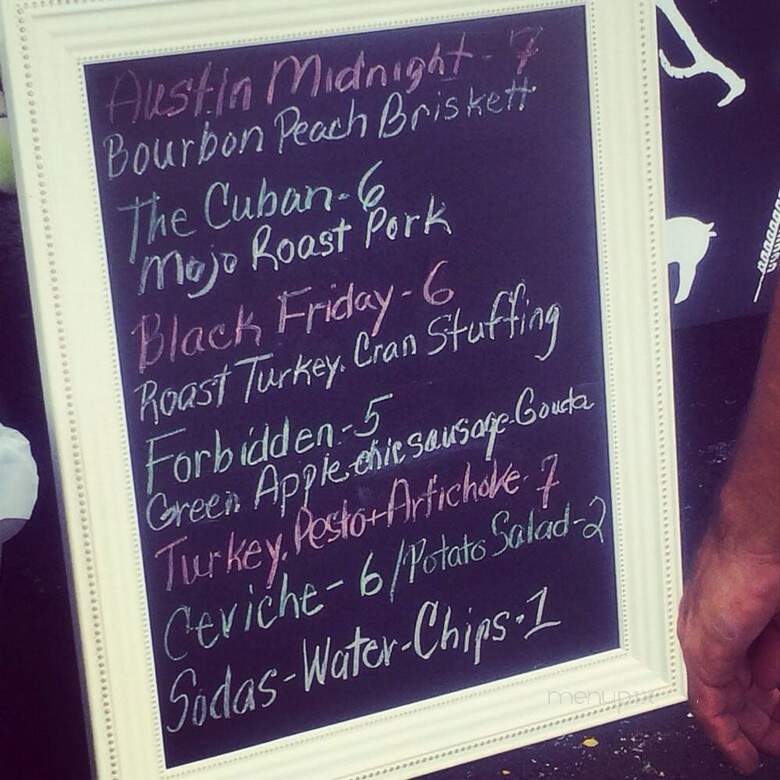 Austin Midnight - 7
Bourbon Peach Briskett
The Cuban - 6
Mojo Roast Pork
Black Friday - 6
Roast Turkey. Cran Stuffing
Forbidden - 5
Green Apple-chic sausage-Gouda
Turkey, Pesto + Artichoke - 7
Ceviche - 6 / Potato Salad - 2
Sodas - Water - Chips - 1